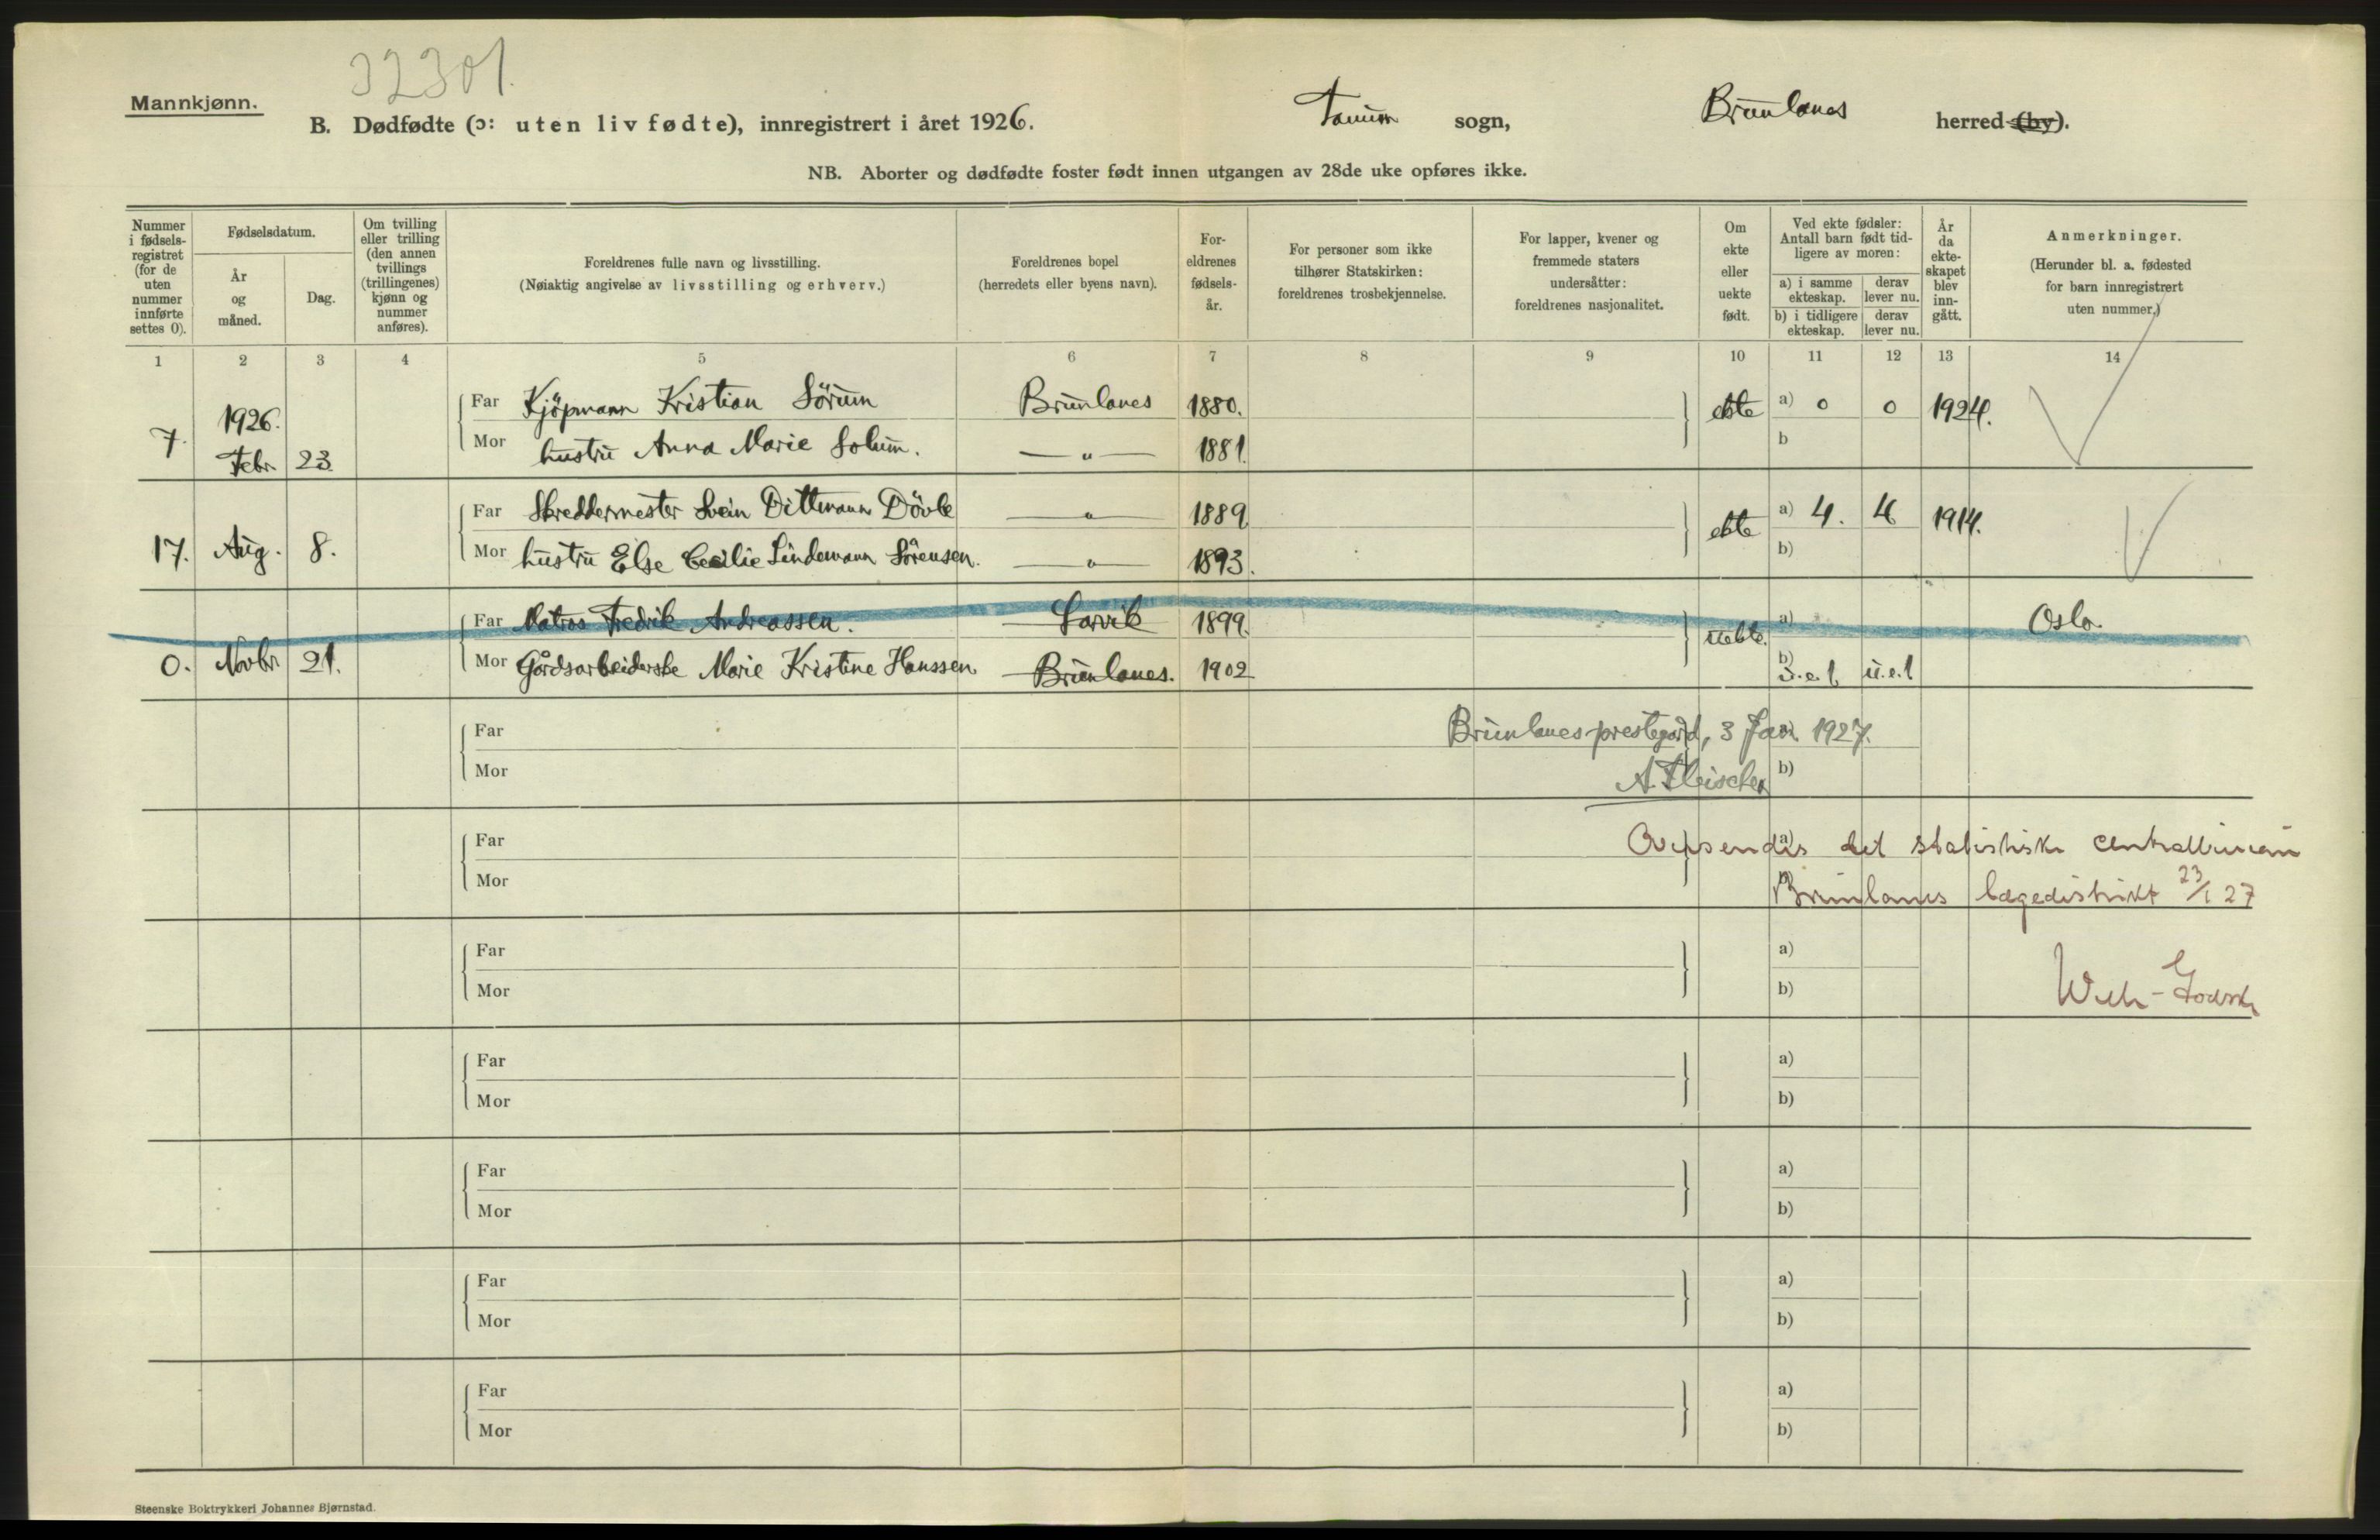 32301.
Mannkjønn.
B. Dødfødte (ɔ: uten liv fødte), innregistrert i året 1926. Tanum sogn, Brunlanes herred (by).
NB. Aborter og dødfødte foster født innen utgangen av 28de uke opføres ikke.
Nummer i fødsels-registret (for de uten nummer innførte settes 0).
Fødselsdatum.
År og måned.
Dag.
Om tvilling eller trilling (den annen tvillings (trillingenes) kjønn og nummer anføres).
Foreldrenes fulle navn og livsstilling.
(Nøiaktig angivelse av livsstilling og erhverv.)
Foreldrenes bopel
(herredets eller byens navn).
For-eldrenes fødsels-år.
For personer som ikke tilhører Statskirken: foreldrenes trosbekjennelse.
For lapper, kvener og fremmede staters undersåtter: foreldrenes nasjonalitet.
Om ekte eller uekte født.
Ved ekte fødsler: Antall barn født tid-ligere av moren:
a) i samme ekteskap. derav lever nu.
b) i tidligere ekteskap. derav lever nu.
År da ekte-skapet blev inn-gått.
Anmerkninger.
(Herunder bl. a. fødested for barn innregistrert uten nummer.)
1 2 3 4 5 6 7 8 9 10 11 12 13 14
7. 1926. Febr. 23. Far Kjöpmann Kristian Sörum Brunlanes 1880. ekte a) 0 0 1924.
Mor hustru Anna Marie Solum. — " — 1881. b
17. Aug. 8. Far Skreddermester Svein Dittmann Dövle — " — 1889 ekte a) 4. 4 1914.
Mor hustru Else Cecilie Lindemann Sörensen. — " — 1893. b)
0. Novbr. 21. Far Matros Fredrik Andreassen. Larvik 1899. uekte. a) Oslo.
Mor Gårdsarbeiderske Marie Kristine Hanssen Brunlanes. 1902 b) u.e.1 u.e.1
Far Brunlanes prestegård, 3 Jan. 1927.
Mor A. Fleischer b)
Far Oversendes det statistiske centralbureau a)
Mor Brunlanes lægedistrikt 23/1 27
Far a)
Mor b)
Far a)
Mor b)
Far a)
Mor b)
Far a)
Mor b)
Far a)
Mor b)
Steenske Boktrykkeri Johannes Bjørnstad.